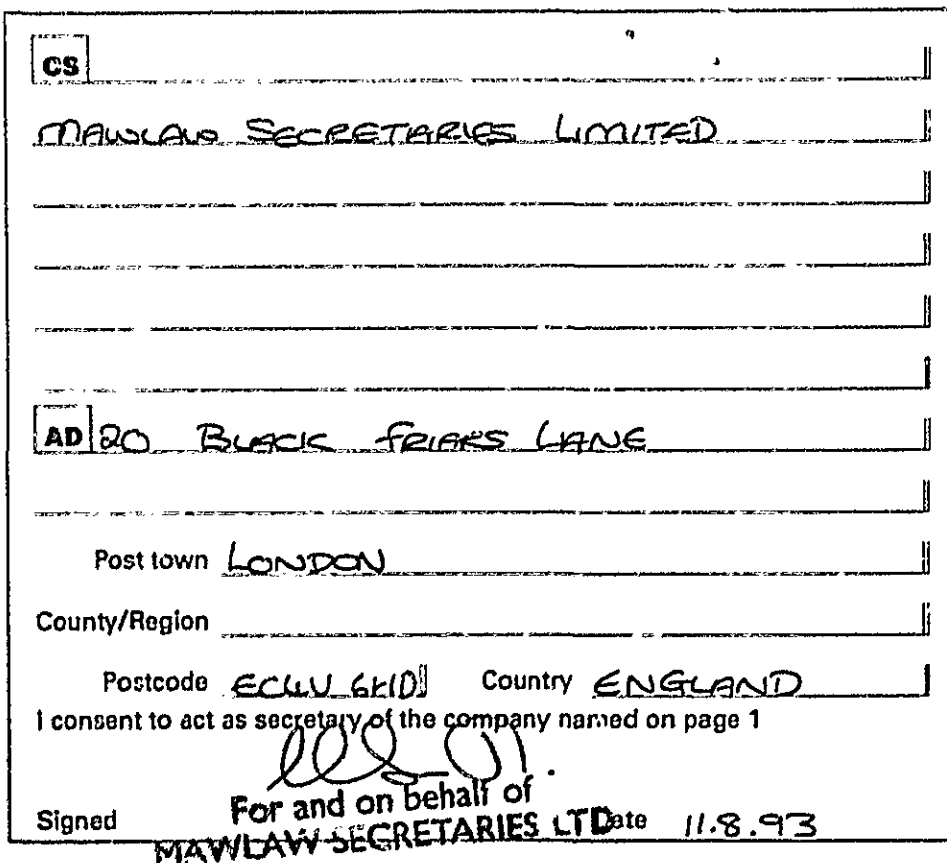 CS
MAWLAW SECRETARIES LIMITED
AD 20 BLACK FRIARS LANE
Post town LONDON
County/Region
Postcode EC4V 6HD Country ENGLAND
I consent to act as secretary of the company named on page 1
For and on behalf of
Signed MAWLAW SECRETARIES LTD Date 11.8.93